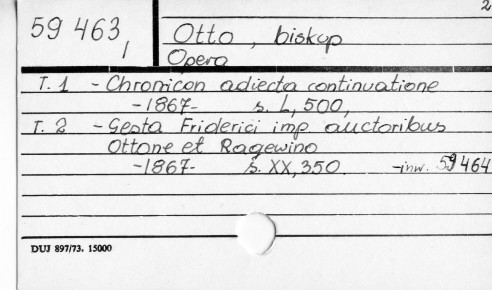 2
59 463, I
Otto, biskup
Opera
T. 1 - Chronicon adiecta continuatione
-1867- s. L, 500,
T. 2 - Gesta Friderici imp. auctoribus
Ottone et Ragewino
-1867- s. XX, 350. -inw. 59 464
DUJ 897/73. 15000